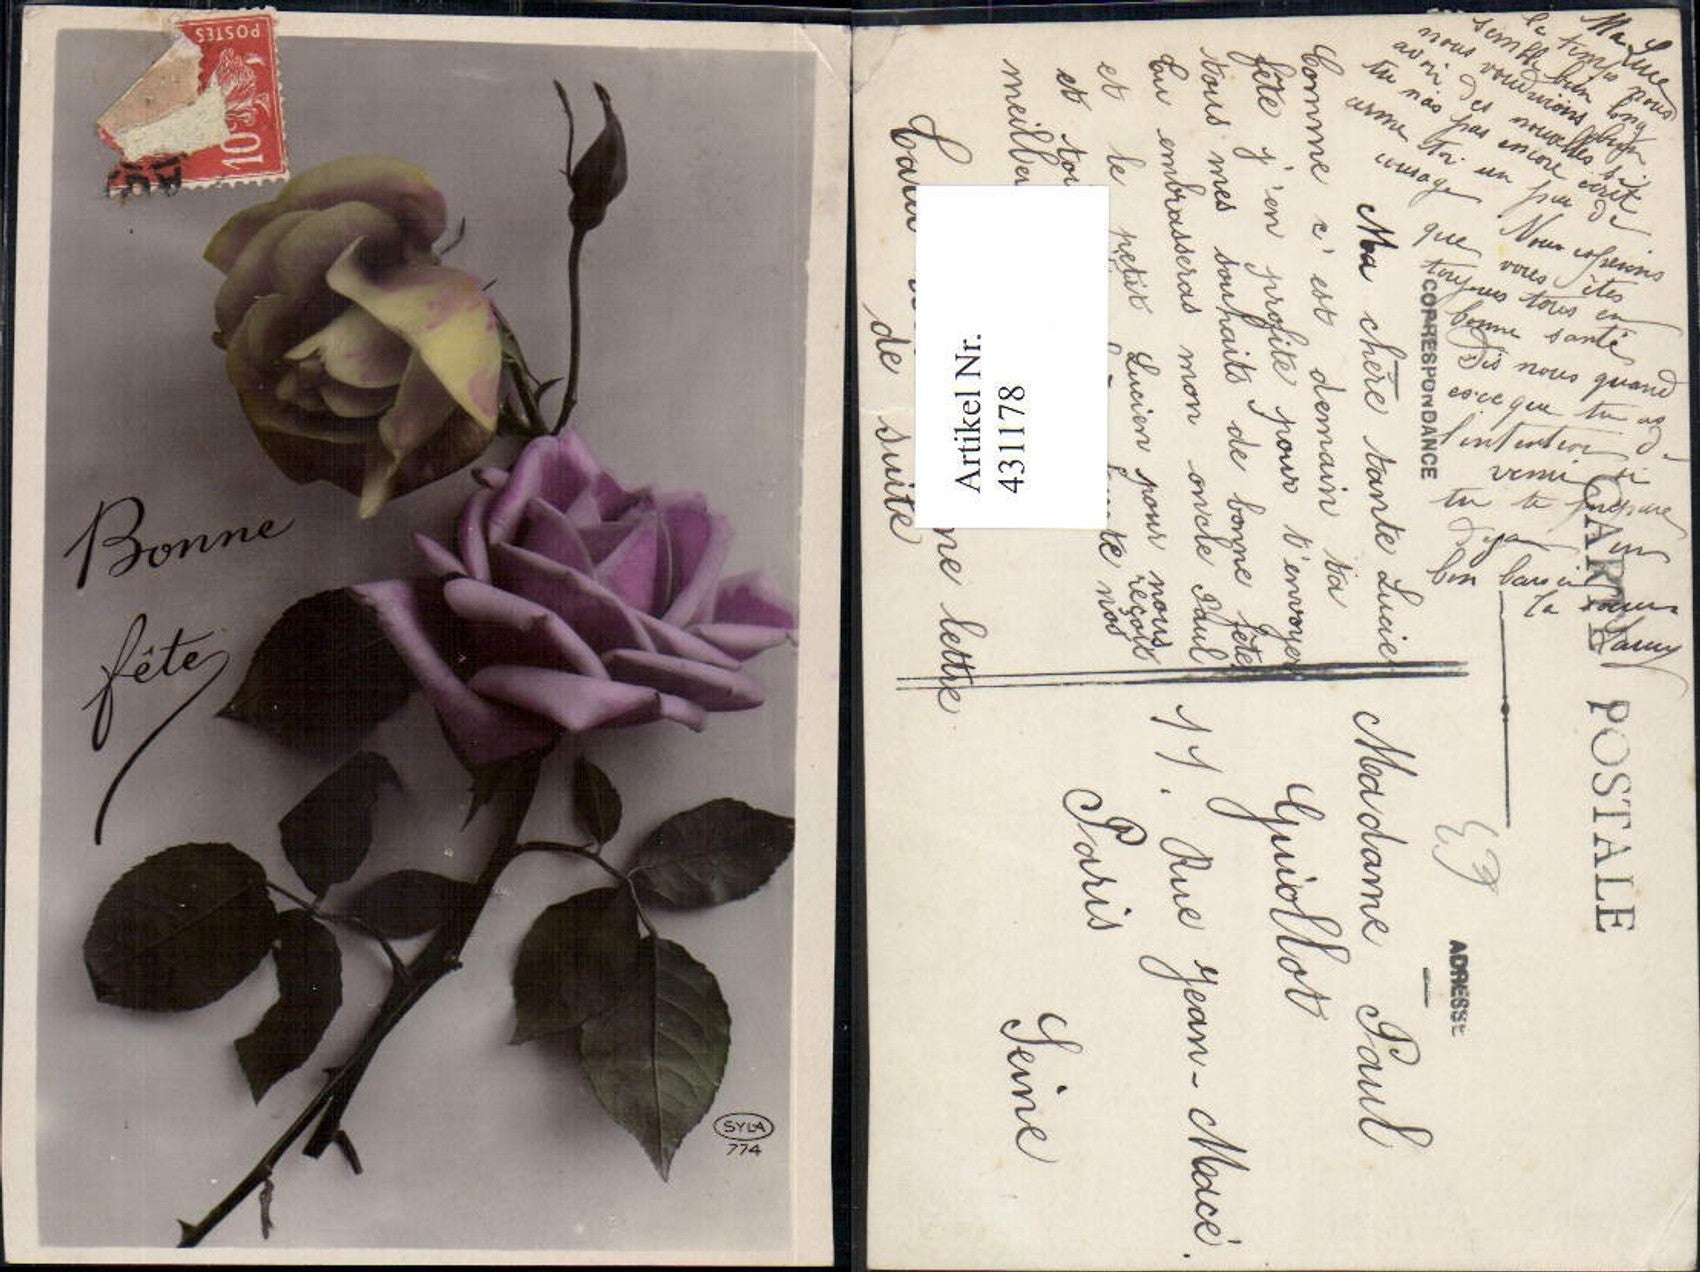 POSTES
10
Bonne
fête
SYLA
774
CARTE POSTALE
CORRESPONDANCE
ADRESSE
Ma Lucie
le temps nous
semble bien long
nous voudrions bien
avoir des nouvelles
tu n'as pas encore écrit
arme toi un peu de
courage
Nous espérons
que vous êtes
toujours tous en
bonne santé
Dis nous quand
es ce que tu as
l'intention de
venir
tu te prépare
un
bon baiser
ta soeur
Fanny
Ma chère tante Lucie
Comme c'est demain ta
fête j'en profite pour t'envoyer
tous mes souhaits de bonne fête
tu embrasseras mon oncle Paul
et le petit Lucien pour nous
et toi reçois
nos
meilleurs
de suite
lettre
Madame Paul
Guiollot
11. Rue Jean-Macé.
Paris
Seine
Artikel Nr.
431178